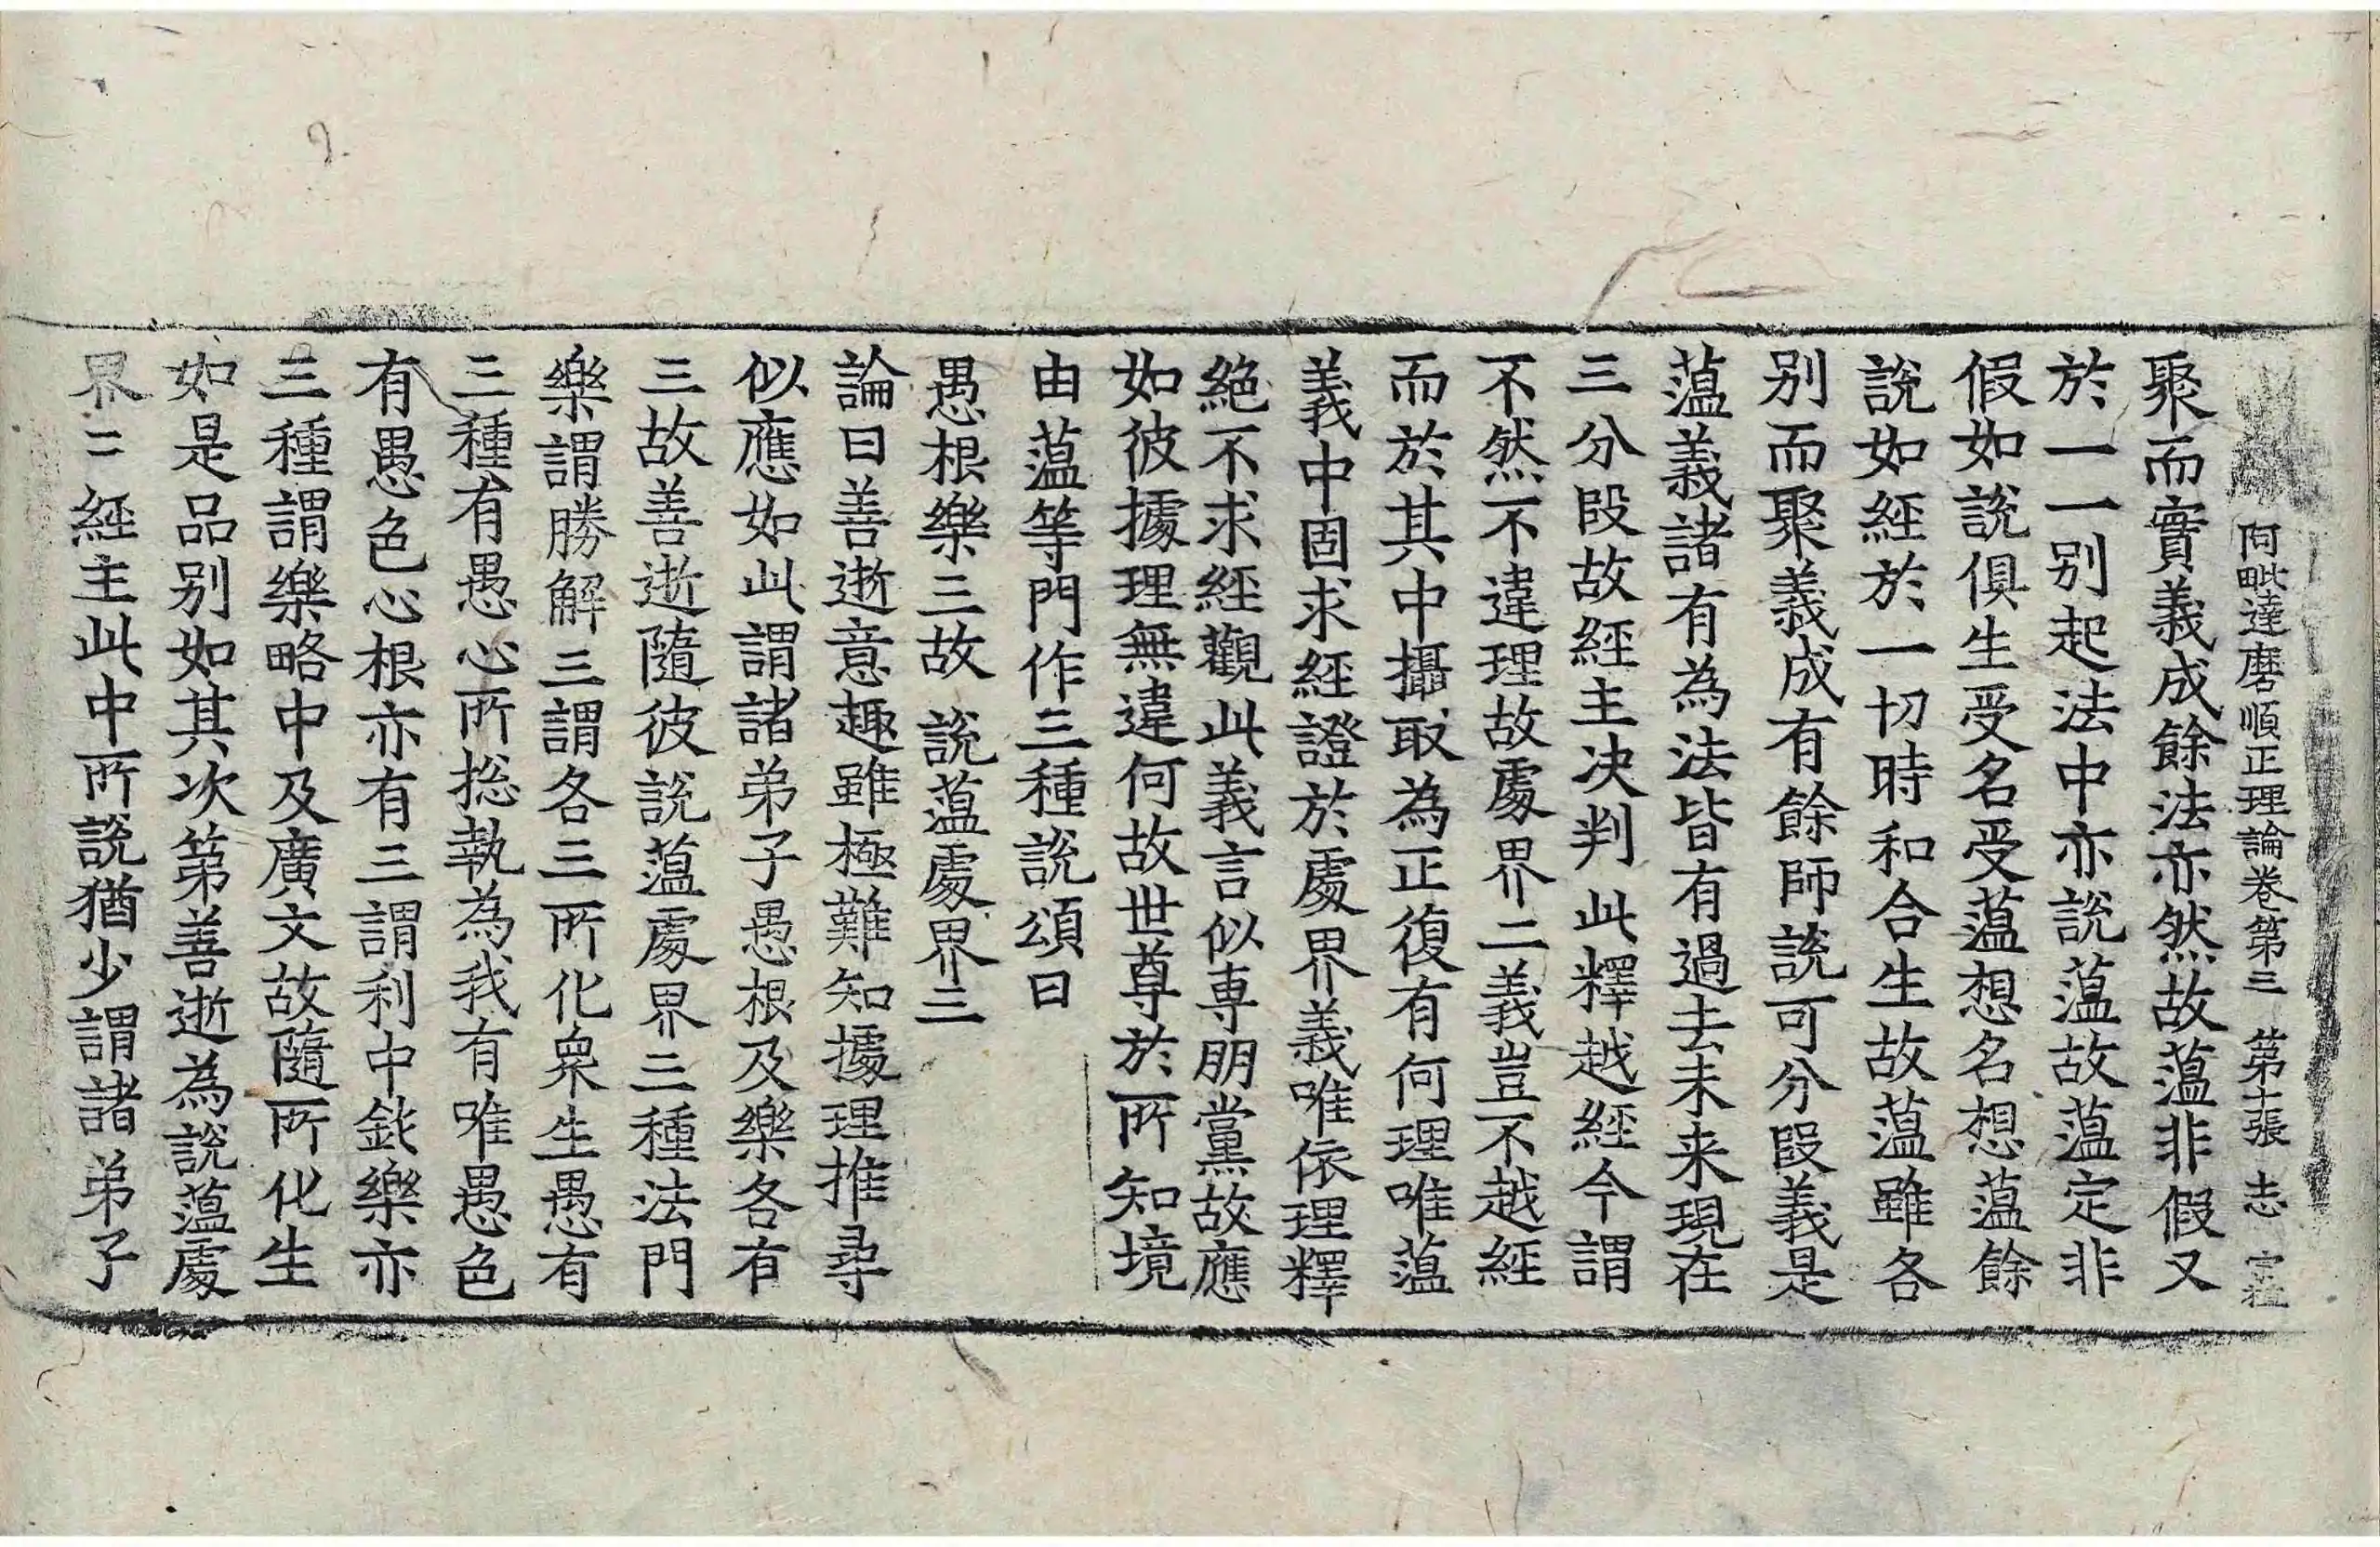 阿毗達磨順正理論卷第三　第十張　志
聚而實義成餘法亦然故蕰非假又
於一一別起法中亦說蕰故蕰定非
假如說俱生受名受蕰想名想蕰餘
說如經於一切時和合生故蕰雖各
別而聚義成有餘師說可分段義是
蕰義諸有為法皆有過去未来現在
三分段故經主决判此釋越經今謂
不然不違理故處界二義豈不越經
而於其中攝取為正復有何理唯蕰
義中固求經證於處界義唯依理釋
絕不求經觀此義言似專朋黨故應
如彼據理無違何故世尊於所知境
由蕰等門作三種說頌曰
愚根樂三故　說蕰處界三
論曰善逝意趣雖極難知據理推尋
似應如此謂諸弟子愚根及樂各有
三故善逝隨彼說蕰處界三種法門
樂謂勝解三謂各三所化衆生愚有
三種有愚心所揔執為我有唯愚色
有愚色心根亦有三謂利中鈍樂亦
三種謂樂略中及廣文故隨所化生
如是品別如其次第善逝為說蕰處
界三經主此中所說猶少謂諸弟子